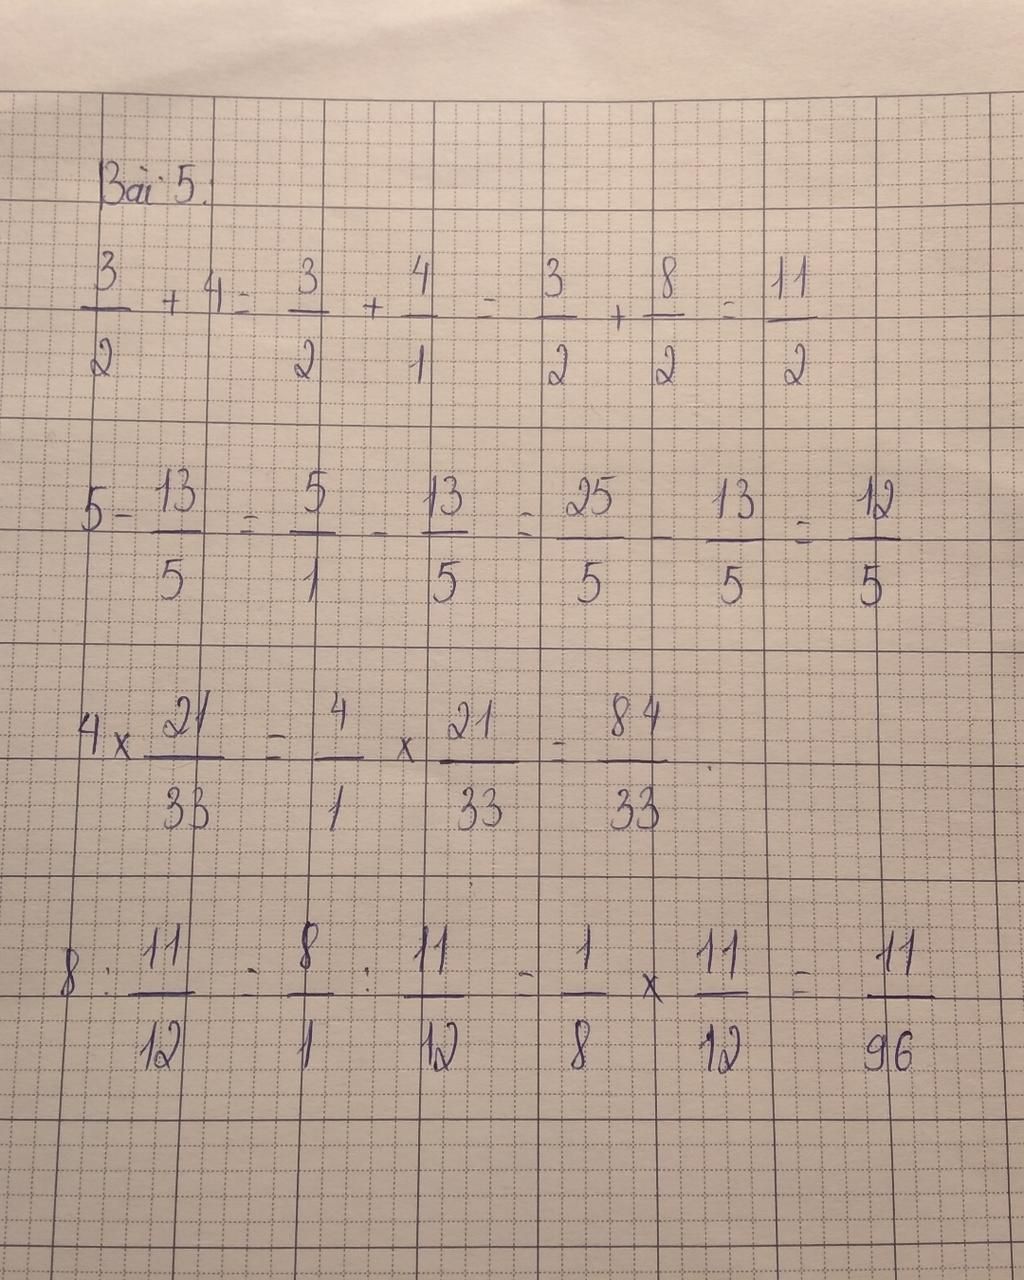 Bài 5.
3/2 + 4 = 3/2 + 4/1 = 3/2 + 8/2 = 11/2
5 - 13/5 = 5/1 - 13/5 = 25/5 - 13/5 = 12/5
4 x 21/33 = 4/1 x 21/33 = 84/33
8 : 11/12 = 8/1 : 11/12 = 1/8 x 11/12 = 11/96